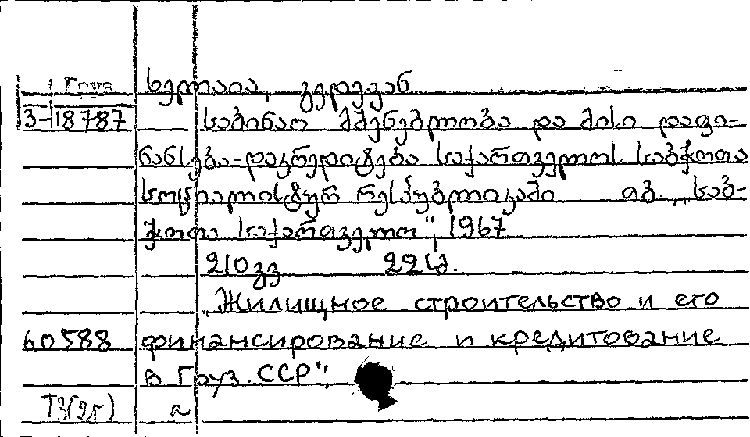 Груз ხელაია, გედევან
3-18787 საბინაო მშენებლობა და მისი დაფი-
ნანსება-დაკრედიტება საქართველოს საბჭოთა
სოციალისტურ რესპუბლიკაში თბ. „საბ-
ჭოთა საქართველო", 1967
210 გვ 22 სმ.
„Жилищное строительство и его
60588 финансирование и кредитование
в Груз. ССР".